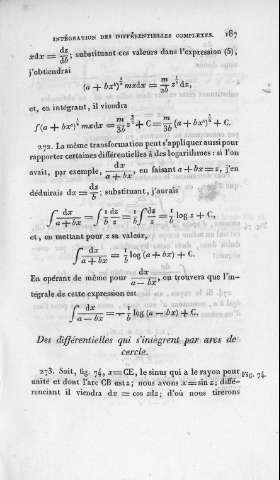 INTÉGRATION DES DIFFÉRENTIELLES COMPLEXES. 187
xdx = dz/3b; substituant ces valeurs dans l'expression (5),
j'obtiendrai
(a + bx²)^½ mxdx = m/2b z^½ dz,
et, en intégrant, il viendra
∫(a + bx²)^½ mxdx = m/3b z^(3/2) + C = m/3b (a + bx²)^(3/2) + C.
272. La même transformation peut s'appliquer aussi pour
rapporter certaines différentielles à des logarithmes : si l'on
avait, par exemple, dx/(a + bx), en faisant a + bx = z, j'en
déduirais dx = dz/b; substituant, j'aurais
∫ dx/(a + bx) = ∫ 1/b dz/z = 1/b ∫ dz/z = 1/b log z + C,
et, en mettant pour z sa valeur,
∫ dx/(a + bx) = 1/b log (a + bx) + C.
En opérant de même pour dx/(a — bx), on trouvera que l'in-
tégrale de cette expression est
∫ dx/(a — bx) = — 1/b log (a — bx) + C.
Des différentielles qui s'intègrent par arcs de
cercle.
273. Soit, fig. 74, x = CE, le sinus qui a le rayon pour Fig. 74.
unité et dont l'arc CB est z; nous avons x = sin z; diffé-
renciant il viendra dx = cos zdz; d'où nous tirerons